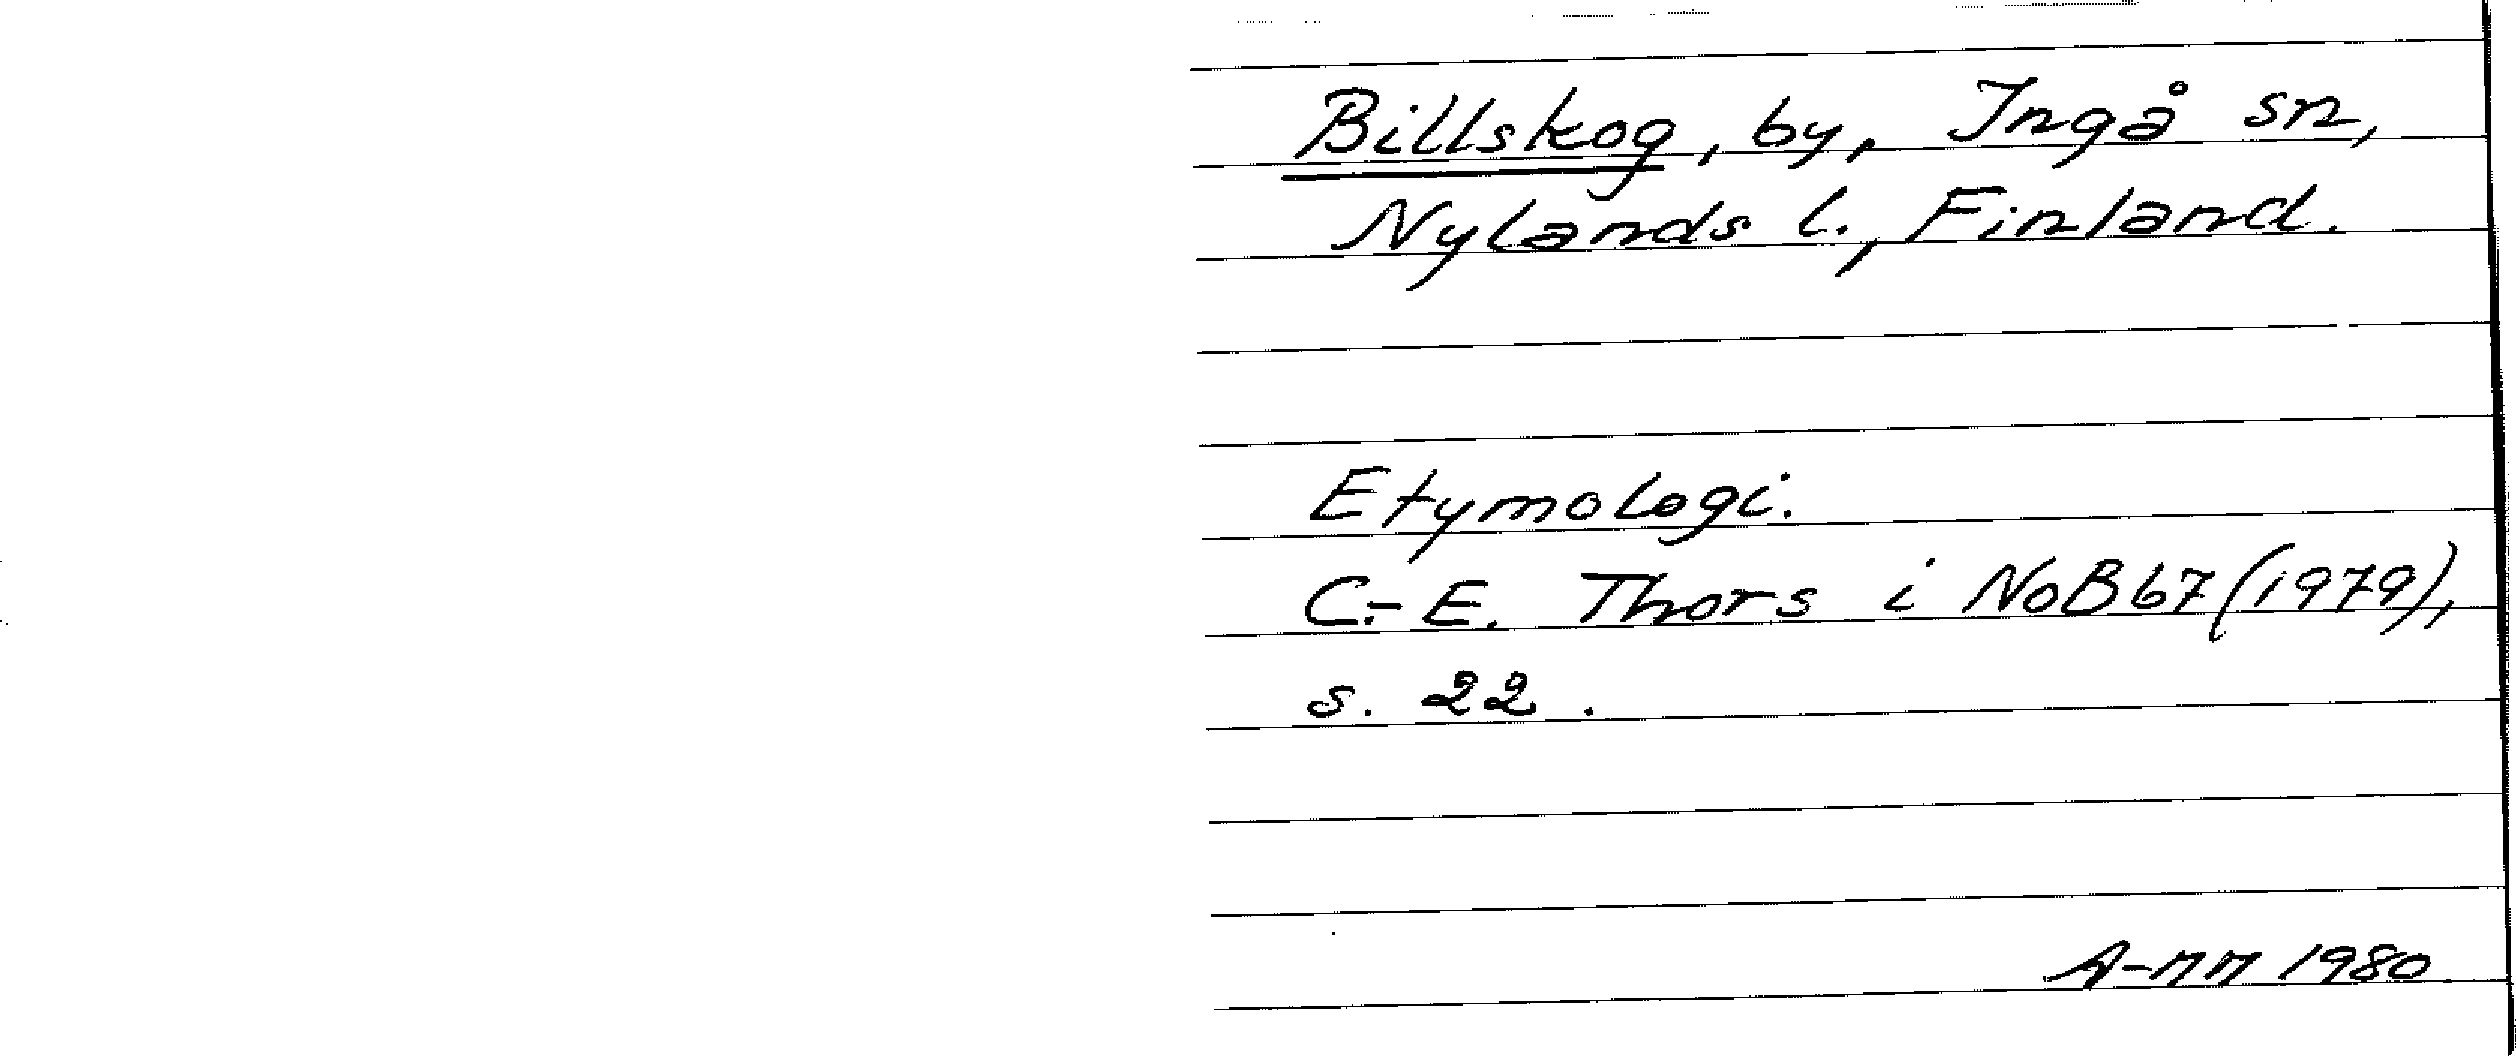 Billskog, by, Ingå sn,
Nylands l., Finland.
Etymologi.
C.-E. Thors i NoB 67 (1979),
s. 22.
A-MM 1980